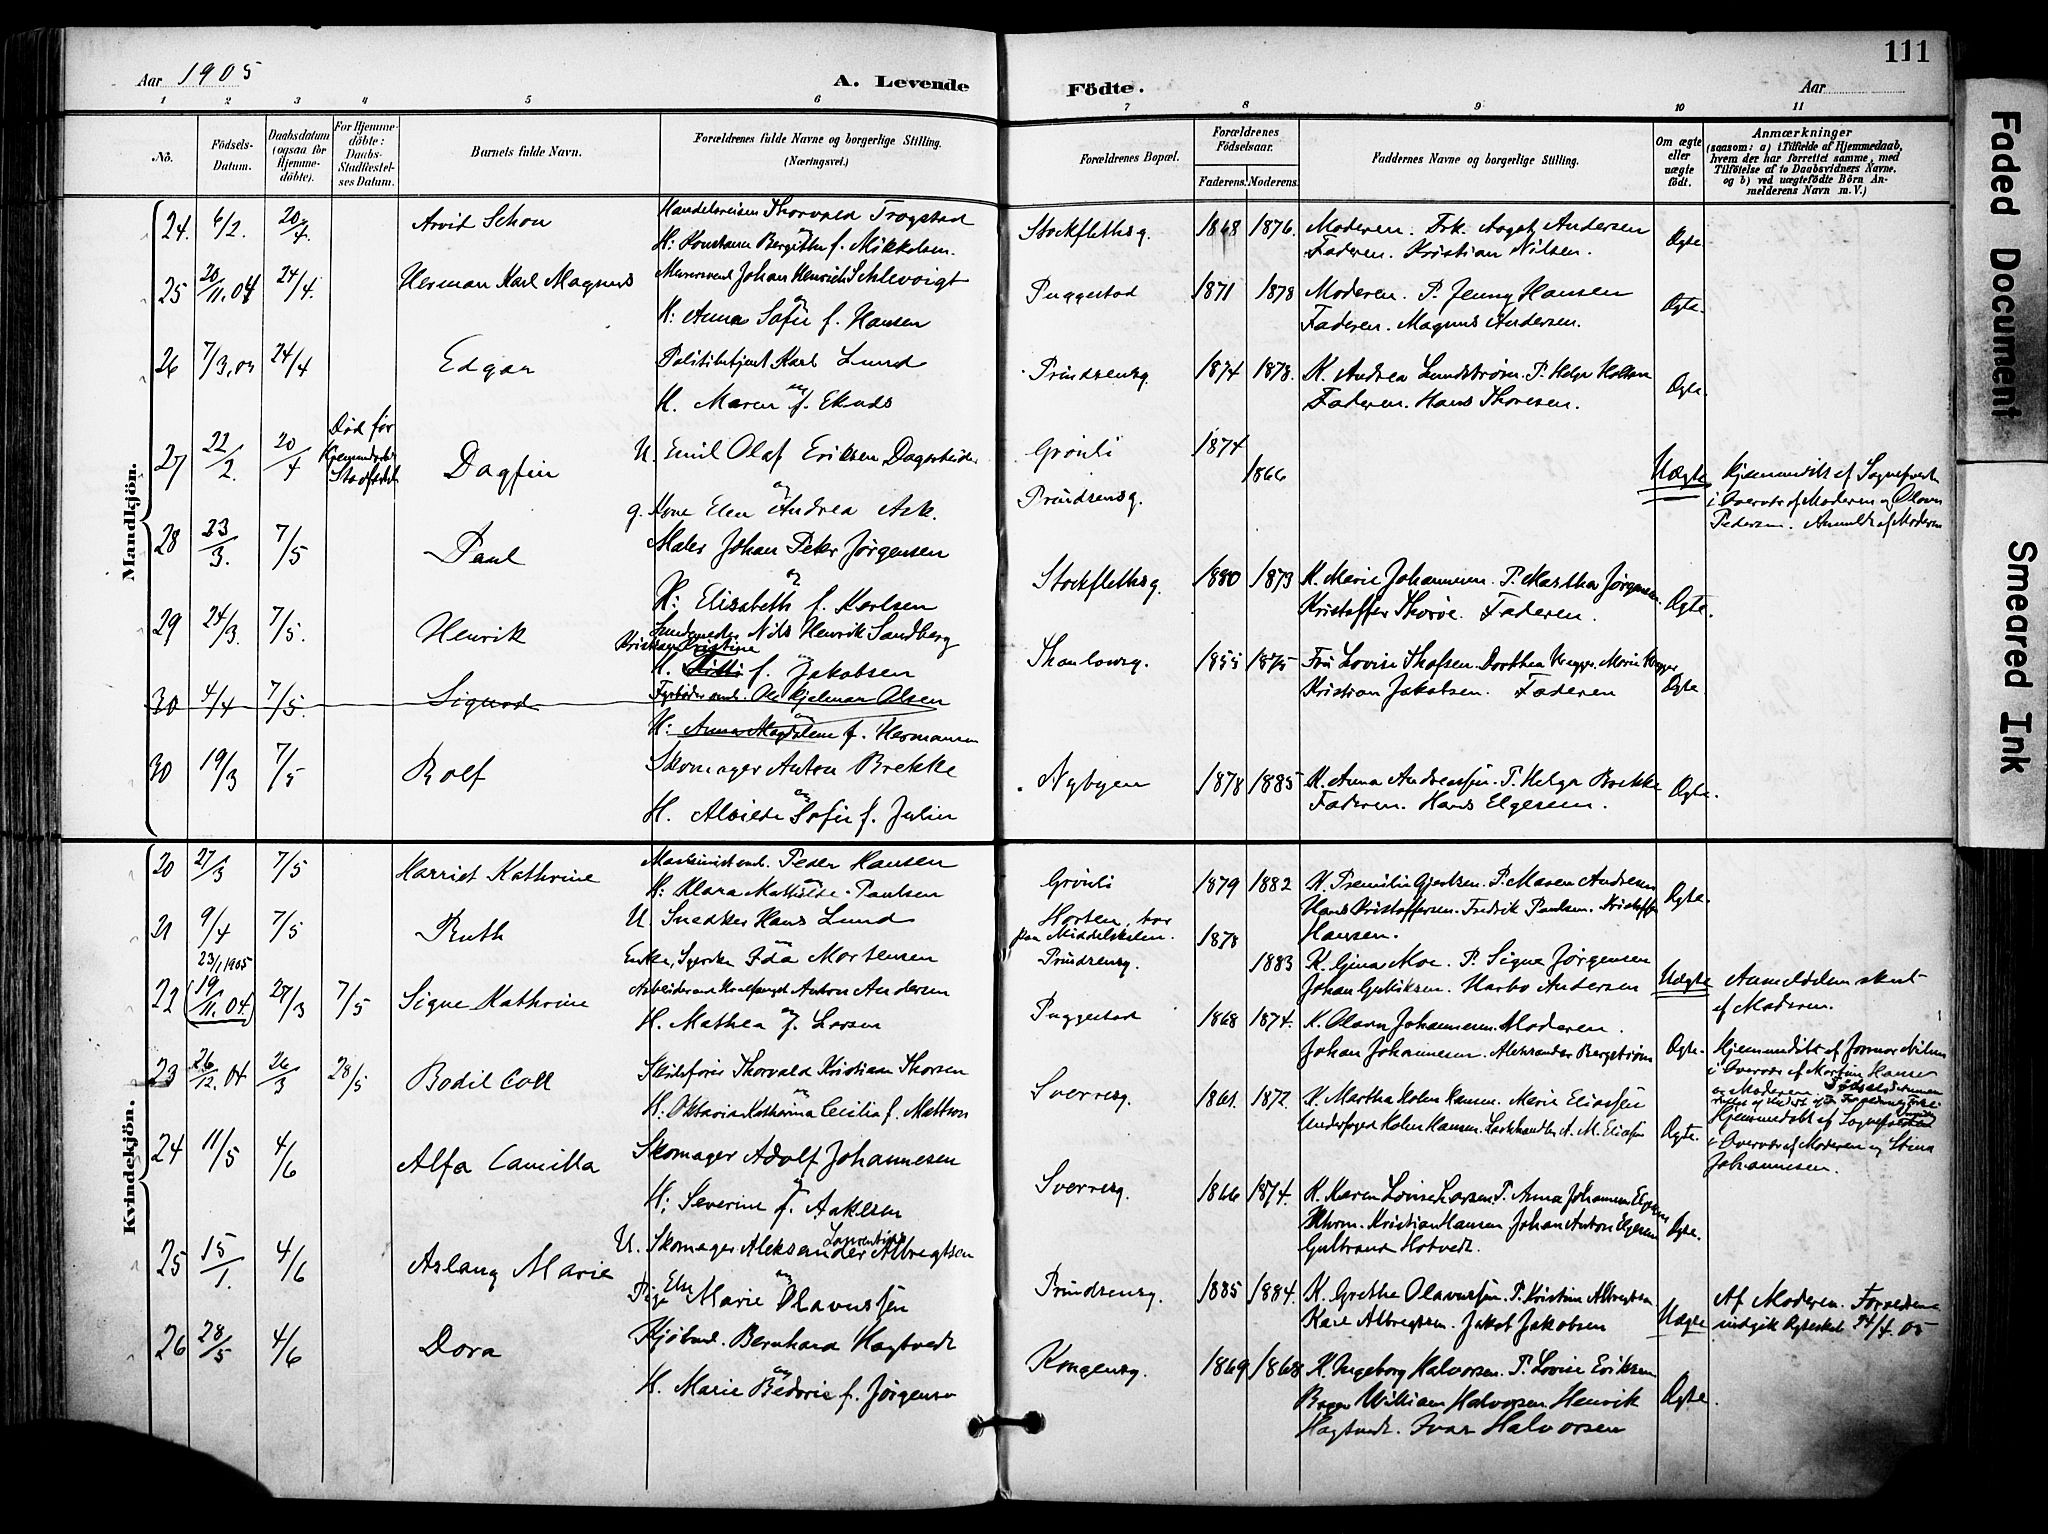 111
Aar 1905
A. Levende
Födte.
Aar
1 2 3 4 5 6 7 8 9 10 11
No.
Födsels-Datum.
Daabsdatum (ogsaa for Hjemme-döbte).
For Hjemme-döbte: Daabs-Stadfæstel-ses Datum.
Barnets fulde Navn.
Forældrenes fulde Navne og borgerlige Stilling. (Næringsvei.)
Forældrenes Bopæl.
Forældrenes Födselsaar.
Faderens. Moderens.
Faddernes Navne og borgerlige Stilling.
Om ægte eller uægte födt.
Anmærkninger
(saasom: a) i Tilfælde af Hjemmedaab, hvem der har forrettet samme, med Tilföielse af to Daabsvidners Navne, og b) ved uægtefödte Börn Anmelderens Navn m. V.)
Mandkjön.
24. 6/2. 20/4. Arvid Schou Handelsreisen Thorvald Trogstad Stockflethsg. 1868 1876. Moderen. Frk. Aagot Andersen Ægte
H: Konstance Bergitte f. Mikkelsen. Faderen. Kristian Nilsen.
25 20/11.04 24/4. Herman Karl Magnus Murersvend Johan Henrich Schlevoigt Puggestad 1871 1878 Moderen. P. Jenny Hansen Ægte.
og
H: Anna Sofie f. Hansen Faderen. Magnus Andersen.
26 7/3.05 24/4 Edgar Politibetjent Karl Lund Prindsensg. 1874 1878. K. Andrea Lundstrøm. P. Helga Holten Ægte.
og
H. Maren f. Eknds Faderen. Hans Thoresen.
27 22/2. 20/4 Død før Hjemmedaaben Stadfæstet Dagfin U. Emil Olaf Eriksen Dagarbeider Grønli 1874 1866 Uægte Hjemmedøbt af Sognepræst
og
g. Kone Elen Andrea Ask. Prindsensg. i Overvær af Moderen og Olava Pedersen. Anmeldt af Moderen
28 23/3. 7/5 Paul Maler Johan Peter Jørgensen Stockflethsg. 1880 1873 K. Marie Johannesen. P. Martha Jørgensen. Ægte.
og
H: Elisabeth f. Karlsen Kristoffer Thorøe. Faderen.
29 24/3. 7/5. Henrik Snedkermester Nils Henrik Sandberg Thaulowsg. 1855 1875 Fru Lovise Thofsen. Dorthea Krogger. Marie Krogger Ægte.
Kristiane Kristine
og
H. f. Jakobsen Kristian Jakobsen. Faderen
30 4/4 7/5. Sigurd Fyrbøder Ole Hjelmar Olsen
og
H: Anna Magdalene f. Hermansen
30 19/3 7/5 Rolf Skomager Anton Brekke Nybyen 1878 1885 K. Anna Andreassen. P. Helga Brekke Ægte.
og
H. Alvilde Sofie f. Julin Faderen. Hans Elgesem.
Kvindekjön.
20 27/3 7/5 Harriet Kathrine Maskinist Peder Hansen Grønli 1879 1882 K. Premilie Gjertsen. P. Maren Andresen Ægte.
og
H: Klara Mathilde Paulsen Hans Kristoffersen. Fredrik Paulsen. Kristoffer Hansen.
21 9/4 7/5 Ruth U. Snedker Hans Lund Horten, bor paa Middelskolen. 1878 1883 K. Gina Moe. P. Signe Jørgensen Uægte Anmeldelsen skeet
Enke, Syerske Ida Mortensen Prindsensg. Johan Gulliksen. Harbo Andersen af Moderen.
22 23/1 1905 (19/11.04) 27/3 7/5 Signe Kathrine Arbeider Anton Andersen Puggestad 1868 1874. K. Olava Johannesen. Moderen. Ægte. Hjemmedøbt af Jormor Nilsen
og
H. Mathea f. Larsen Johan Johannesen. Aleksander Bergstrøm i Overvær af Martin Hansen og Moderen
23 26/12.04 26/3 28/5 Bodil Coll Skibsfører Thorvald Kristian Thorsen Sverresg. 1861. 1872. K. Martha Holm Hansen. Marie Eliassen Ægte. Hjemmedøbt af Sognepræsten
og
H. Oktavia Katharina Cecilia f. Mattson Underfoged Holm Hansen. A. M. Eliassen i Overvær af Moderen og Stina Johannesen.
24 11/5 4/6 Alfa Camilla Skomager Adolf Johannesen Sverresg. 1866 1874. K. Karen Lovise Larsen. P. Anna Johansen Ægte.
og
H; Severine f. Aslesen Kristian Hansen. Johan Anton Gulbrand Hotvedt.
25 15/1. 4/6 Aslaug Marie U. Skomager Aleksander Laurentius Albregtsen Prindsensg. 1885 1884. K. Grethe Olavussen. P. Kristine Albregtsen Uægte Af Moderen. Forældrene
og
Pige Else Marie Olavussen Karl Albregtsen. Jakob Jakobsen indgik Ægteskab 24/4.05
26 28/5 4/6 Dora Kjøbmd. Bernhard Hagtvedt Kongensg. 1869 1868 K. Ingeborg Halvorsen. P. Lovise Eriksen Ægte.
og
H. Marie Bedorie f. Jørgensen Bager William Halvorsen. Henrik
Hagtvedt. Ivar Halvorsen
Faded Document
Smeared Ink